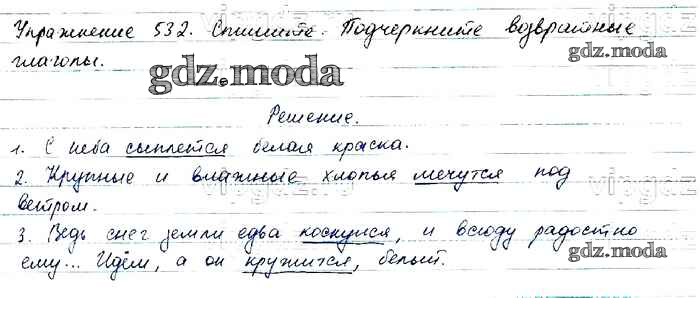 Упражнение 532. Спишите. Подчеркните возвратные
глаголы.
gdz.moda
Решение.
1. С неба сыплется белая краска.
2. Крупные и влажные хлопья мечутся под
ветром.
3. Ведь снег земли едва коснулся, и всюду радостно
gdz.moda
ему... Идём, а он кружится, белый.